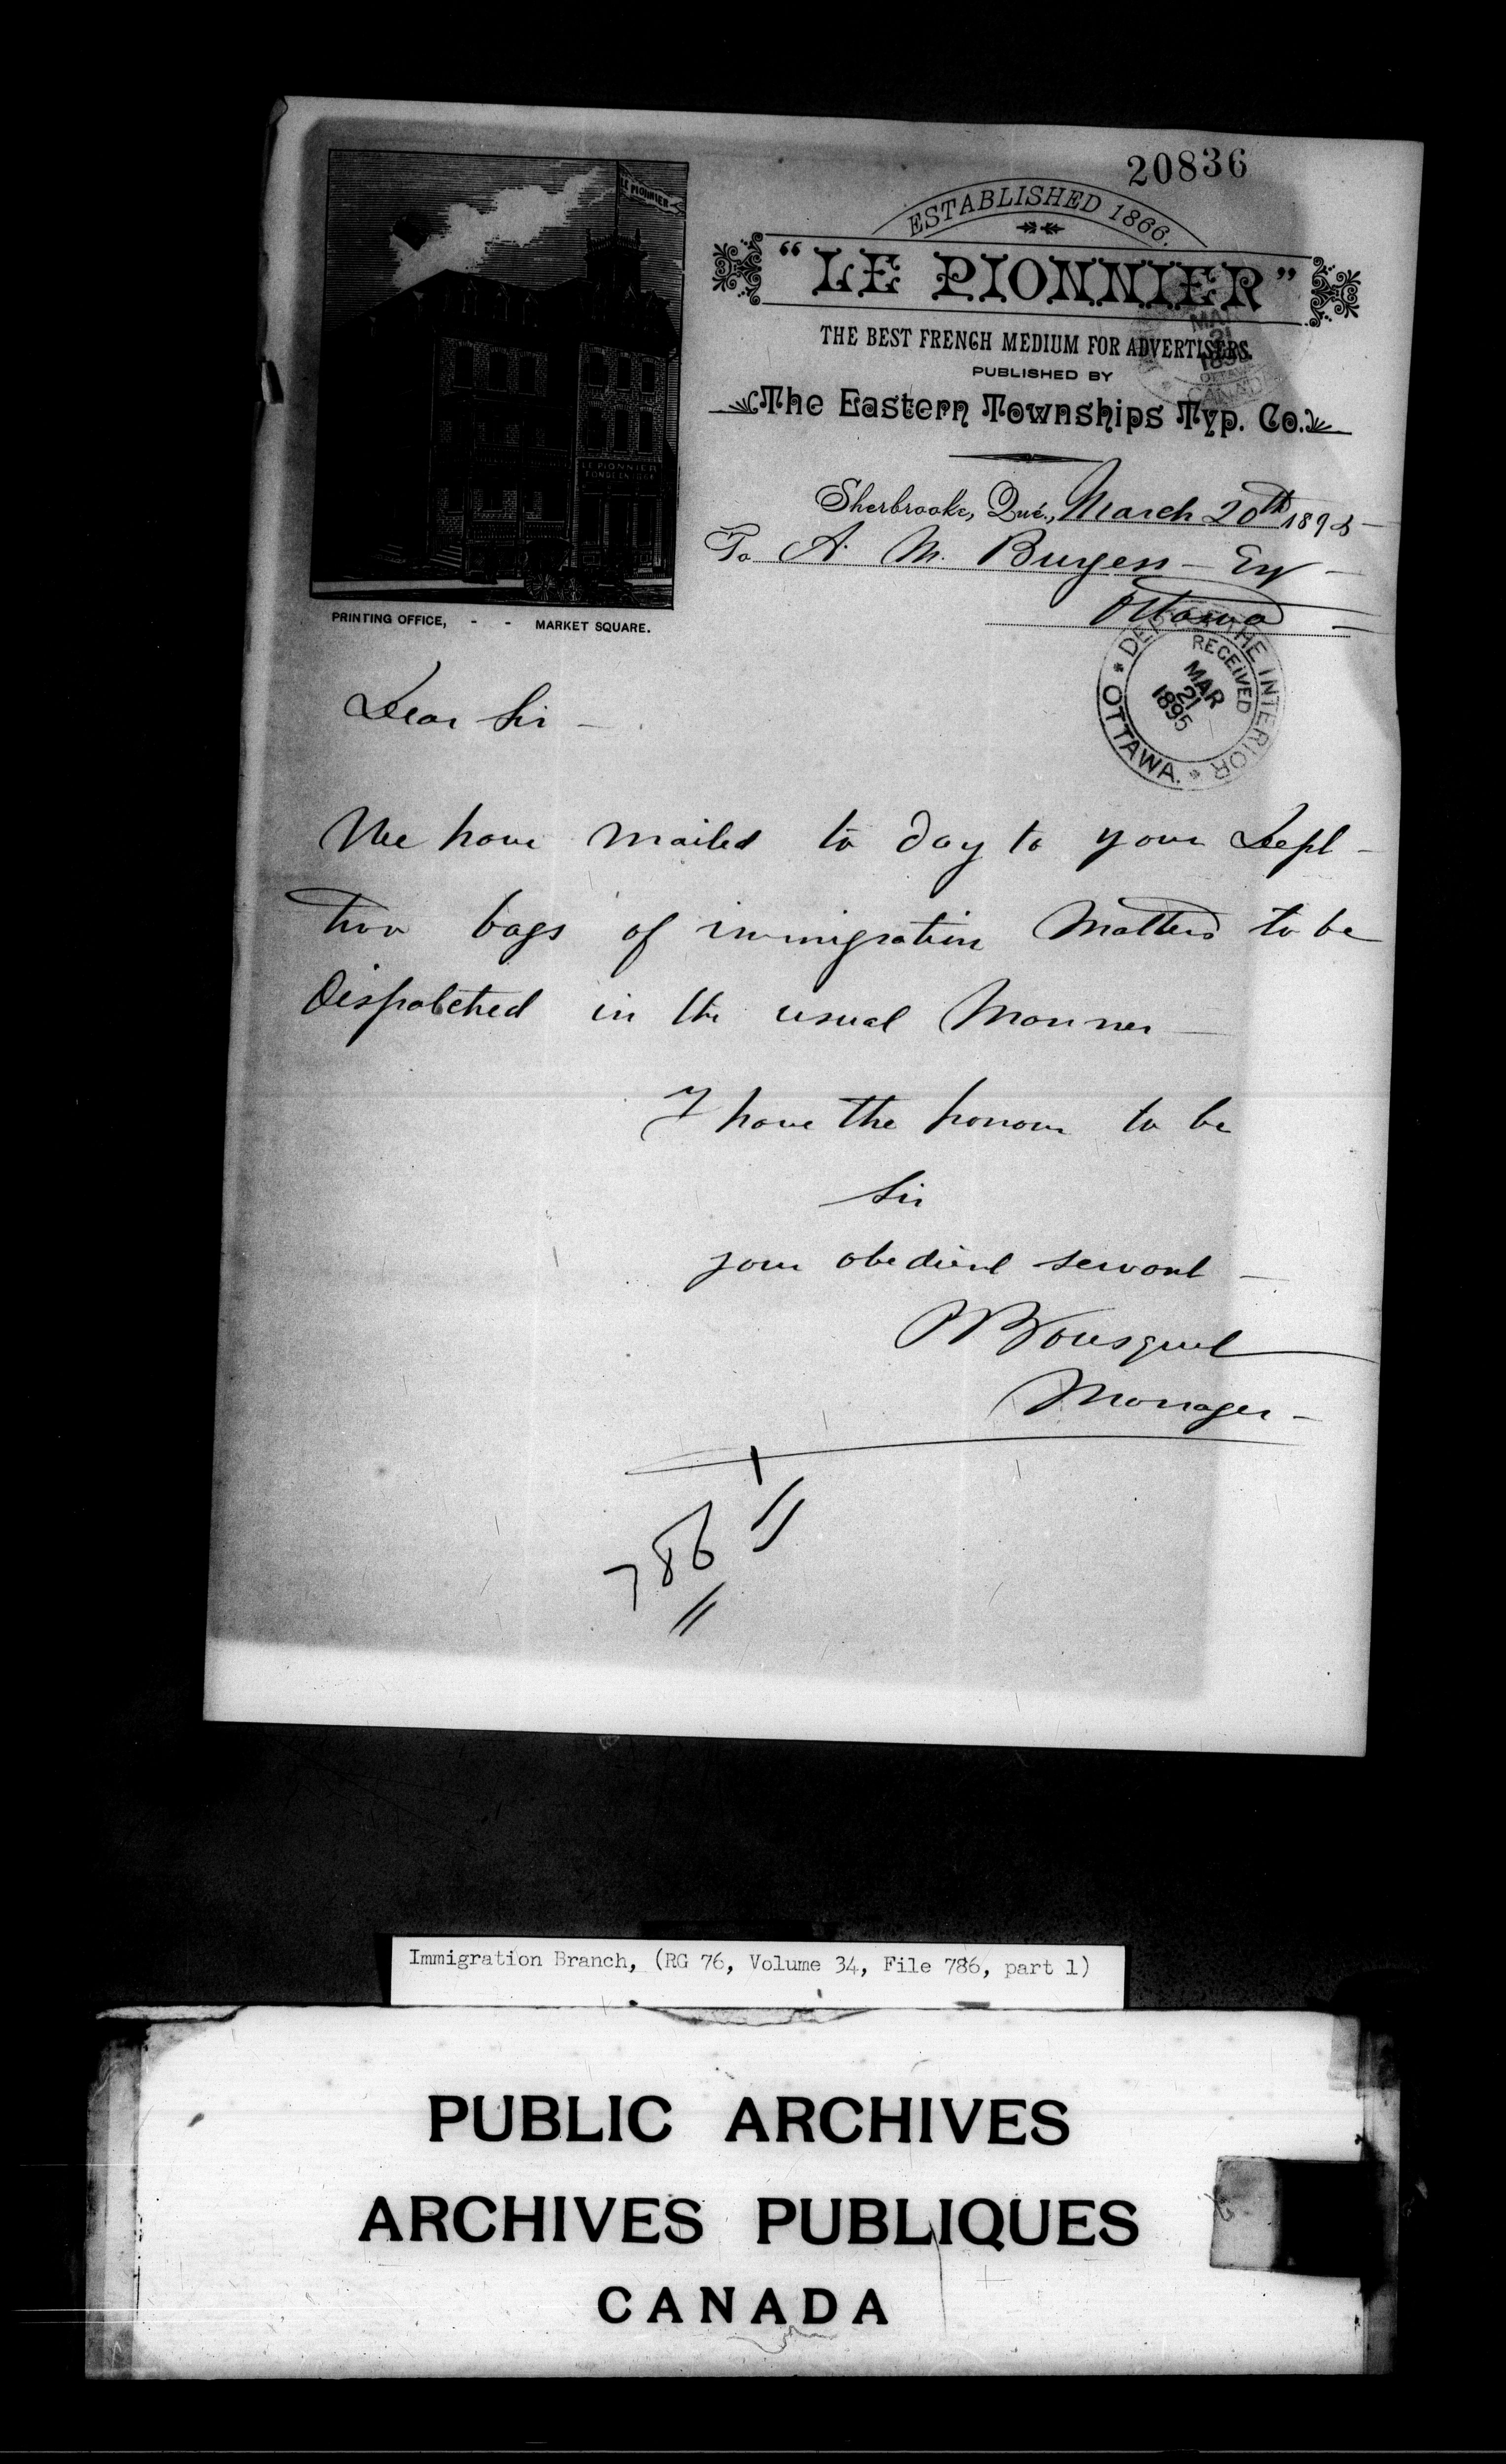 20836
ESTABLISHED 1866.
"LE PIONNIER"
THE BEST FRENCH MEDIUM FOR ADVERTISERS.
PUBLISHED BY
The Eastern Townships Typ. Co.
LE PIONNIER
LE PIONNIER
FONDE EN 1866
PRINTING OFFICE, - - MARKET SQUARE.
MAR
21
OTTAWA
CANADA
Sherbrooke, Qué., March 20th 1895
To A. M. Burgess - Esq -
Ottawa
DEPT OF THE INTERIOR
RECEIVED
MAR
21
1895
OTTAWA.
Dear Sir -
We have mailed to day to your Dept -
two bags of immigration Matters to be
Dispatched in the usual Manner -
I have the honour to be
Sir
your obedient servant -
P Bousquet
Manager -
786
Immigration Branch, (RG 76, Volume 34, File 786, part 1)
PUBLIC ARCHIVES
ARCHIVES PUBLIQUES
CANADA